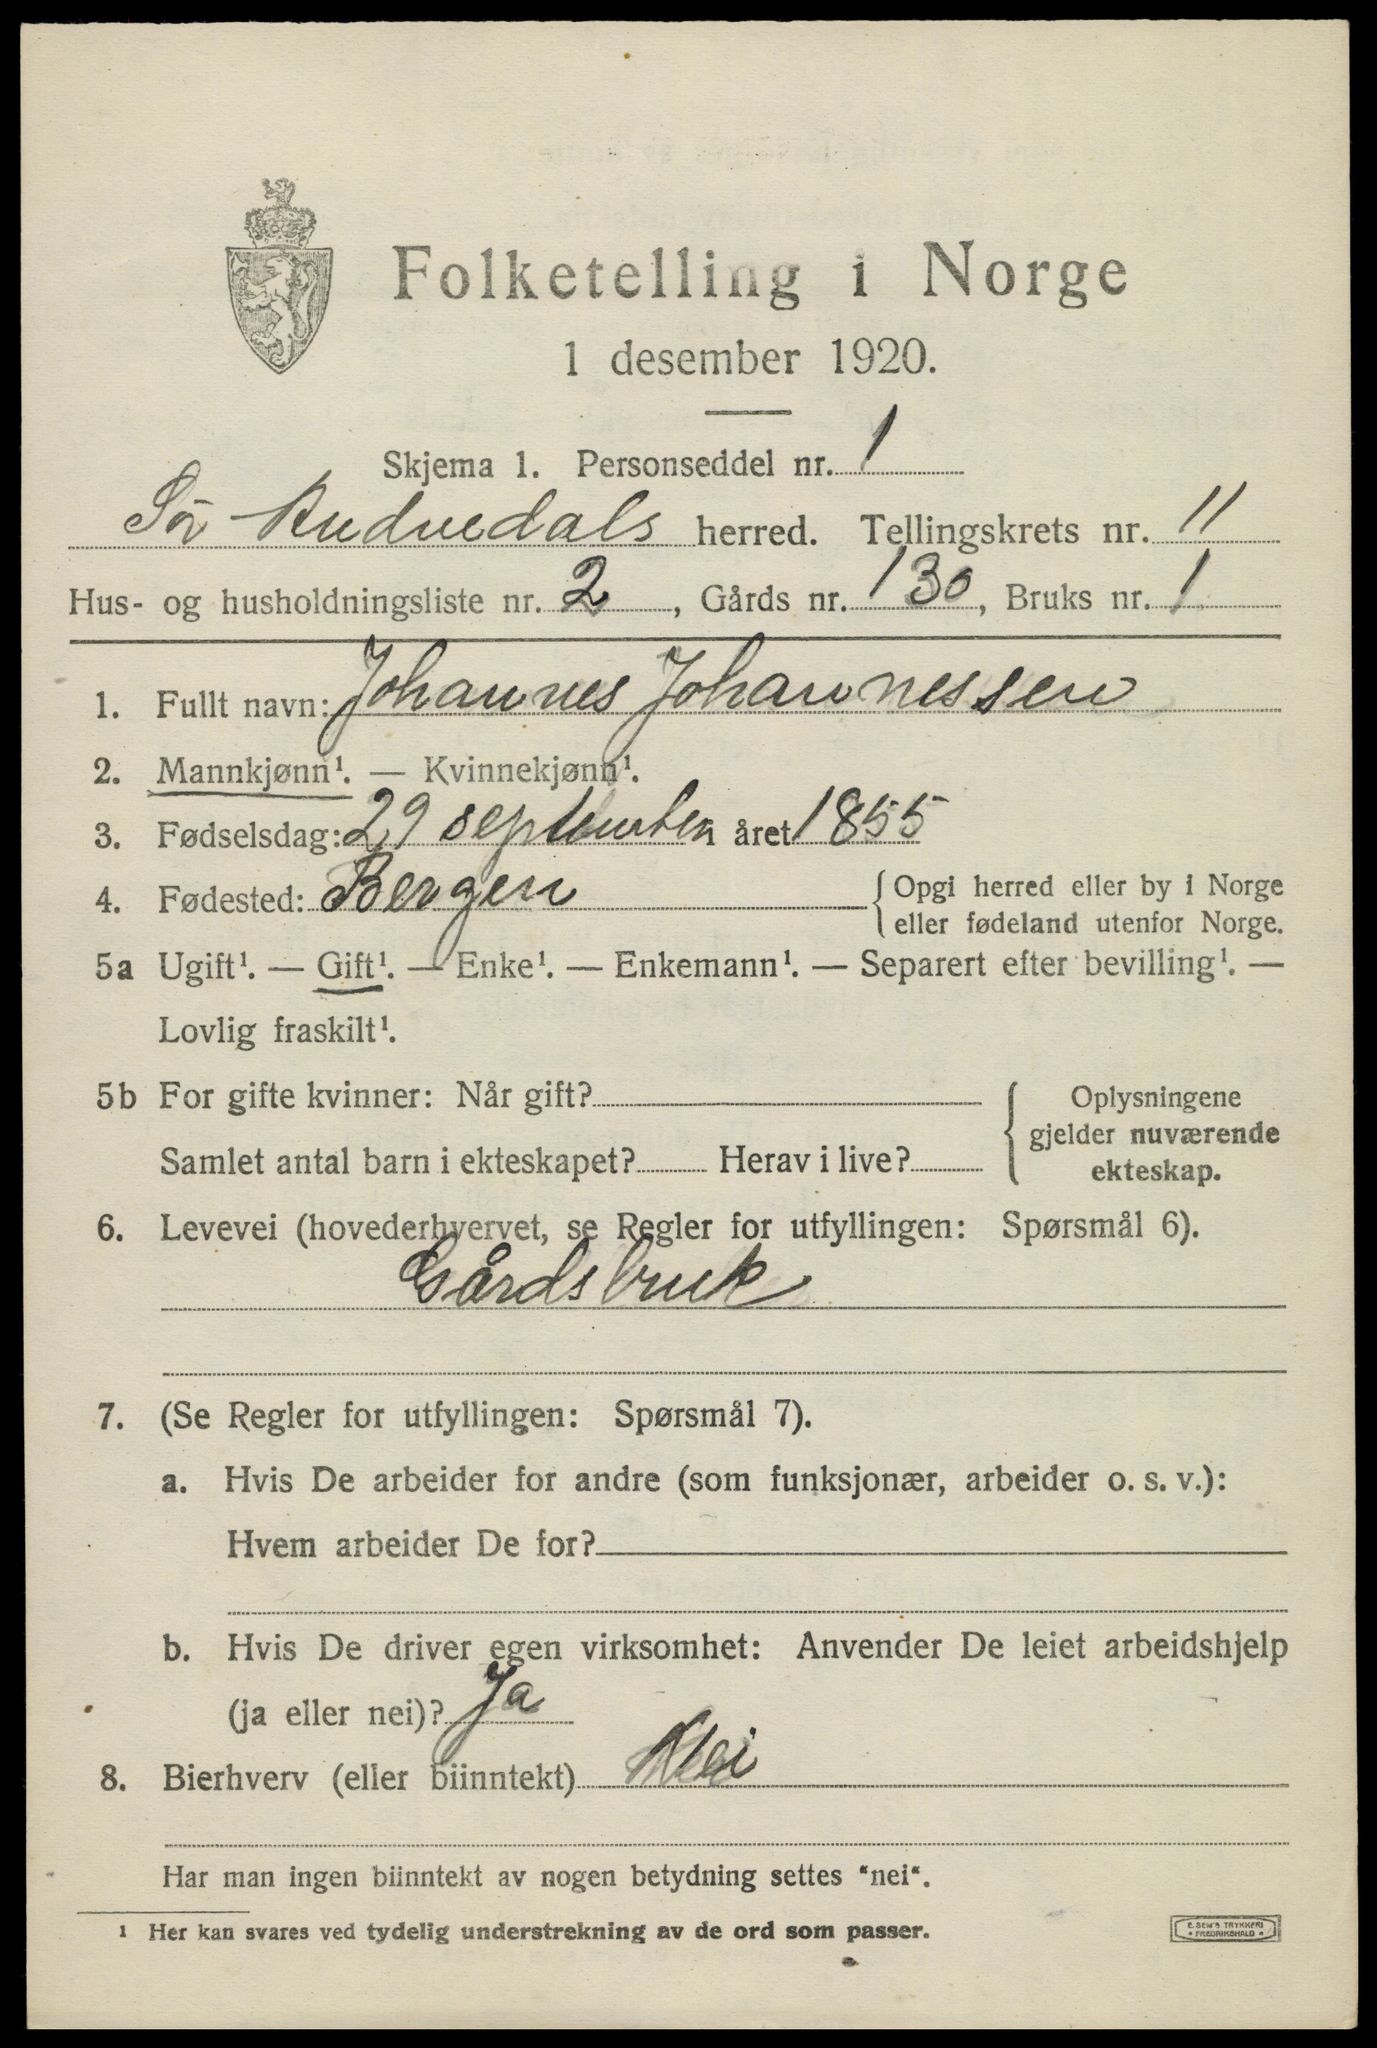 Folketelling i Norge
1 desember 1920.
Skjema 1. Personseddel nr. 1
Sör Audnedals herred. Tellingskrets nr. 11
Hus- og husholdningsliste nr. 2, Gårds nr. 130, Bruks nr. 1
1. Fullt navn: Johannes Johannessen
2. Mannkjønn¹. — Kvinnekjønn¹.
3. Fødselsdag: 29 september året 1855
4. Fødested: Bergen { Opgi herred eller by i Norge
eller fødeland utenfor Norge.
5a Ugift¹. — Gift¹. — Enke¹. — Enkemann¹. — Separert efter bevilling¹. —
Lovlig fraskilt¹.
5b For gifte kvinner: Når gift? { Oplysningene
gjelder nuværende
Samlet antal barn i ekteskapet? Herav i live?
ekteskap.
6. Levevei (hovederhvervet, se Regler for utfyllingen: Spørsmål 6).
Gårdsbruk
7. (Se Regler for utfyllingen: Spørsmål 7).
a. Hvis De arbeider for andre (som funksjonær, arbeider o. s. v.):
Hvem arbeider De for?
b. Hvis De driver egen virksomhet: Anvender De leiet arbeidshjelp
(ja eller nei)? Ja
8. Bierhverv (eller biinntekt) Nei
Har man ingen biinntekt av nogen betydning settes “nei“.
1 Her kan svares ved tydelig understrekning av de ord som passer.
E. SEM'S TRYKKERI
* FREDRIKSHALD *